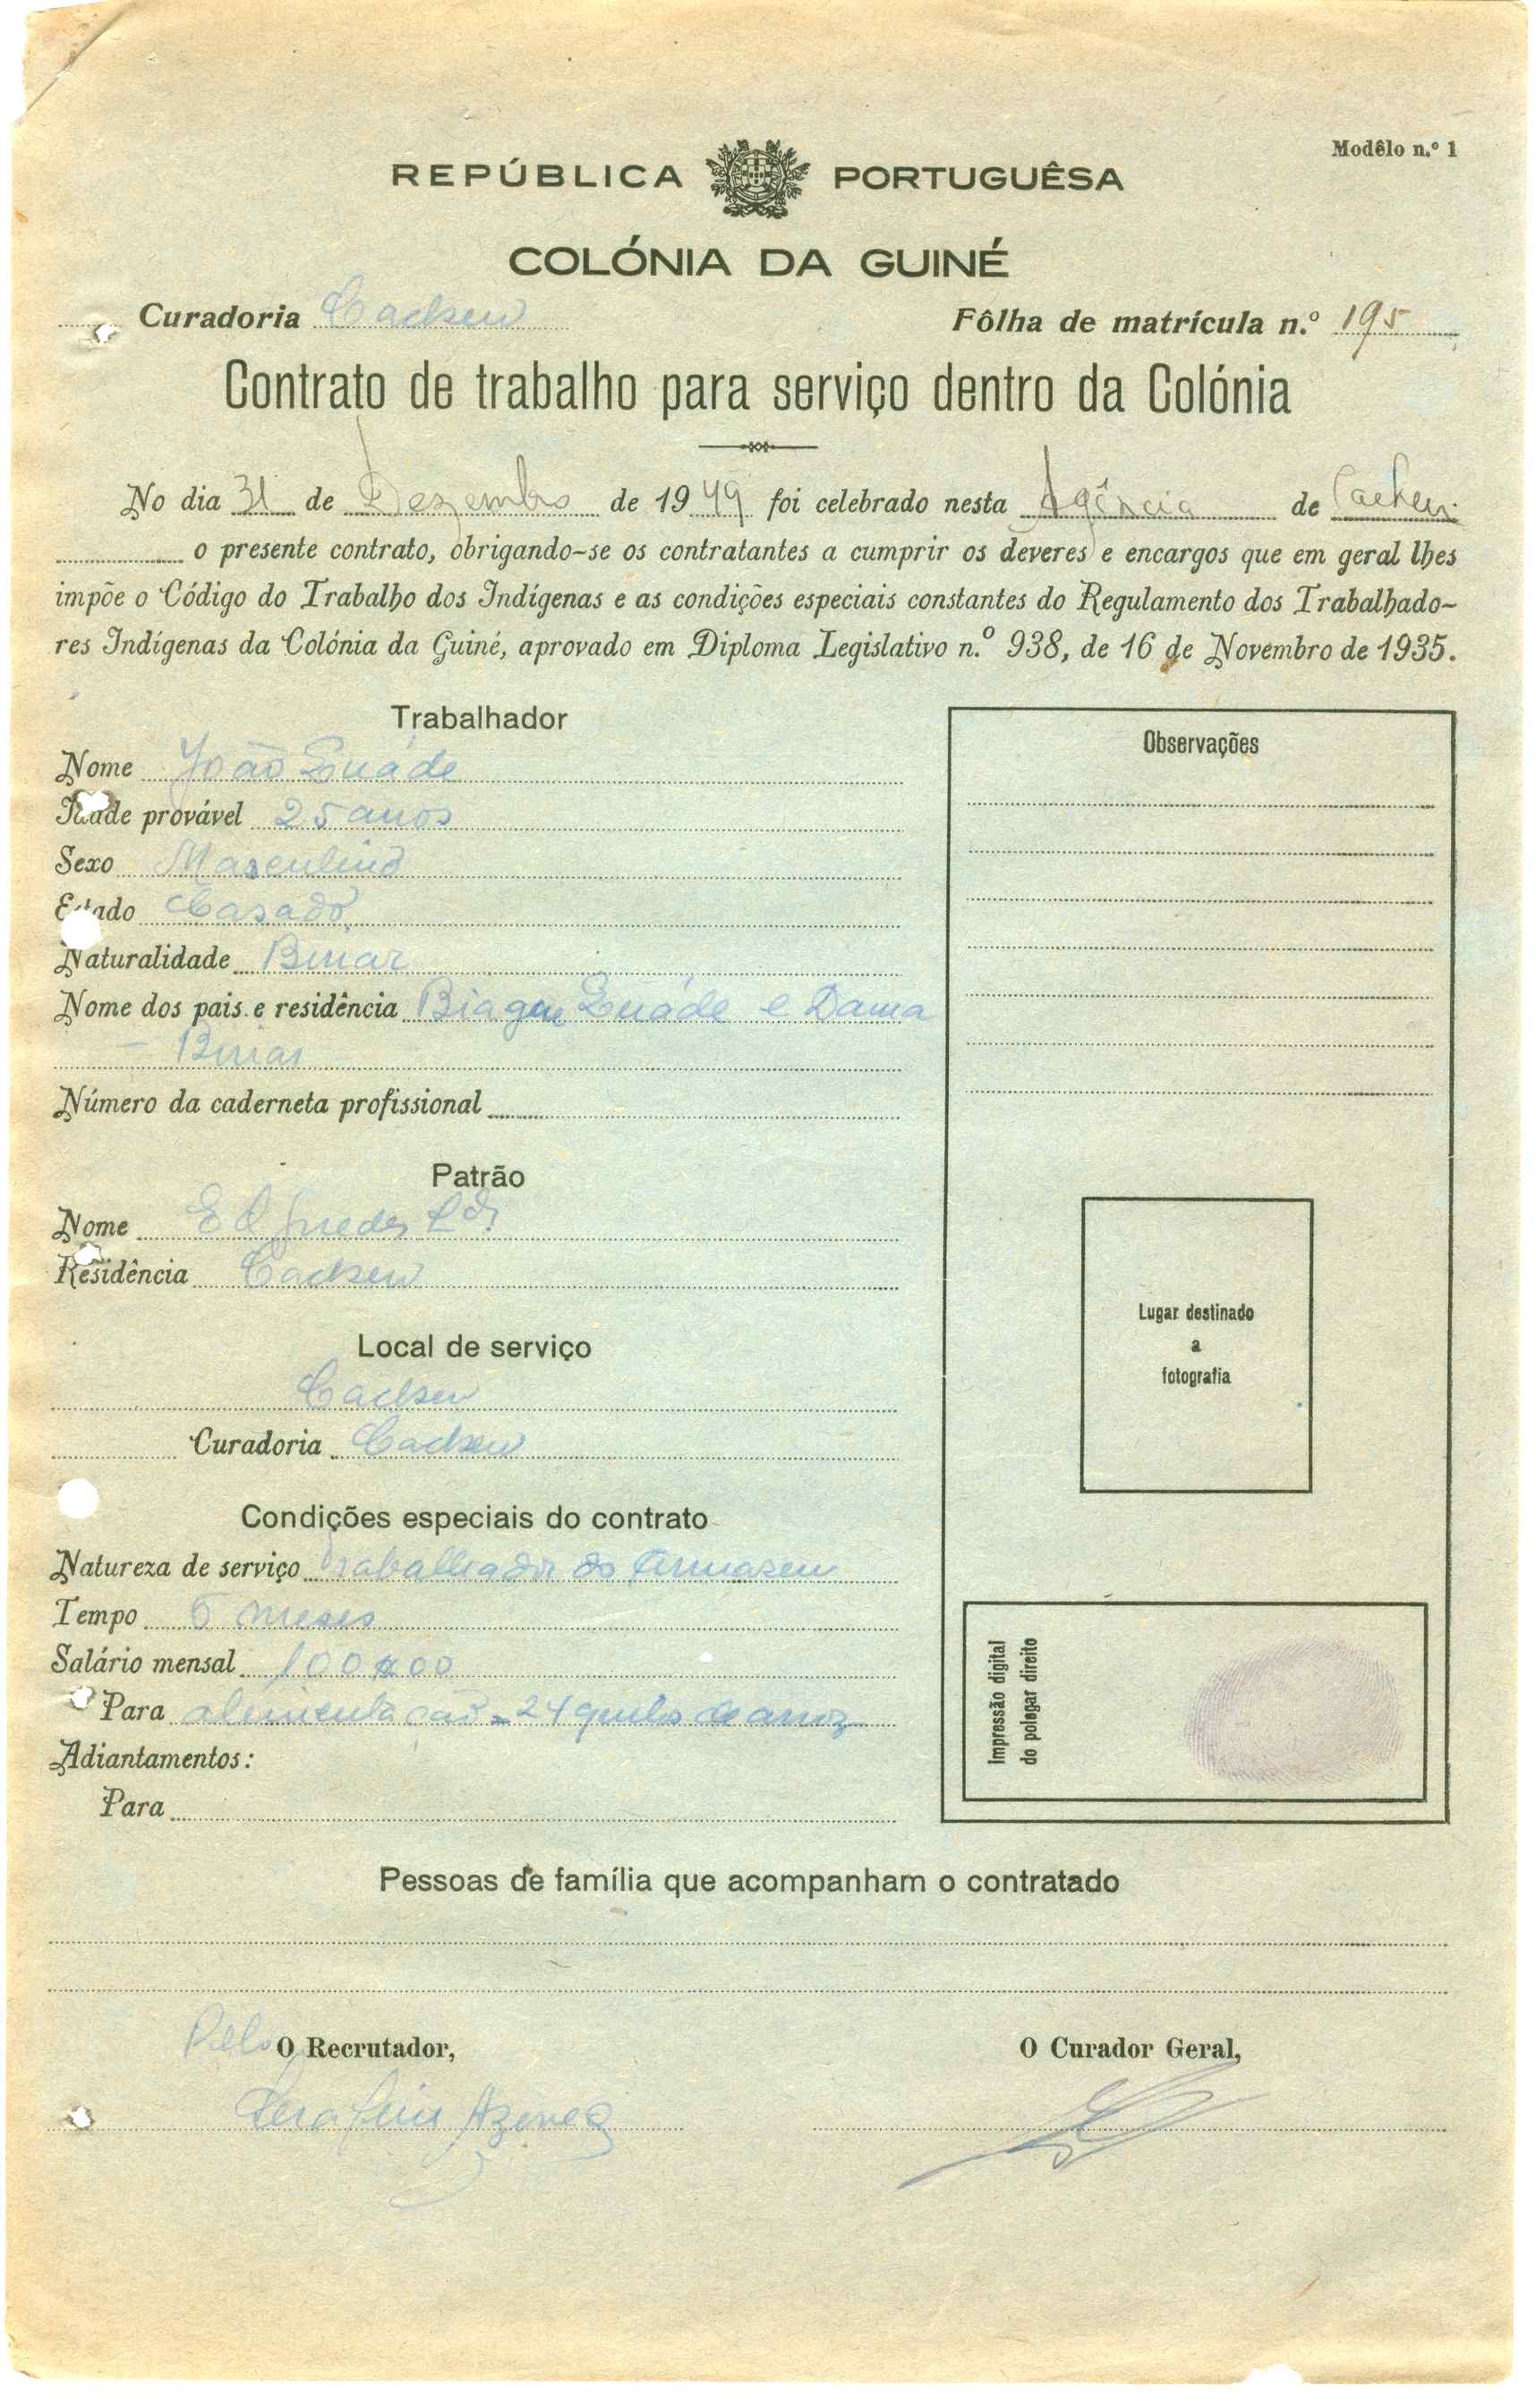 Modêlo n.º 1
REPÚBLICA PORTUGUÊSA
COLÓNIA DA GUINÉ
Curadoria Cacheu Fôlha de matrícula n.º 195
Contrato de trabalho para serviço dentro da Colónia
No dia 31 de Dezembro de 1949 foi celebrado nesta Agência de Cacheu
o presente contrato, obrigando-se os contratantes a cumprir os deveres e encargos que em geral lhes
impõe o Código do Trabalho dos Indígenas e as condições especiais constantes do Regulamento dos Trabalhado-
res Indígenas da Colónia da Guiné, aprovado em Diploma Legislativo n.º 938, de 16 de Novembro de 1935.
Trabalhador
Nome João
Idade provável 25 anos
Sexo Masculino
Estado Casado
Naturalidade Binar
Nome dos pais e residência e Dama
- Binar
Número da caderneta profissional
Patrão
Nome Ed Guedes Ldª
Residência Cacheu
Local de serviço
Cacheu
Curadoria Cacheu
Condições especiais do contrato
Natureza de serviço Trabalhador do Armazem
Tempo 6 meses
Salário mensal 100$00
Para alimentação = 24 quilos de arroz
Adiantamentos:
Para
Observações
Lugar destinado
a
fotografia
Impressão digital
do polegar direito
Pessoas de família que acompanham o contratado
Pelo O Recrutador,
O Curador Geral,